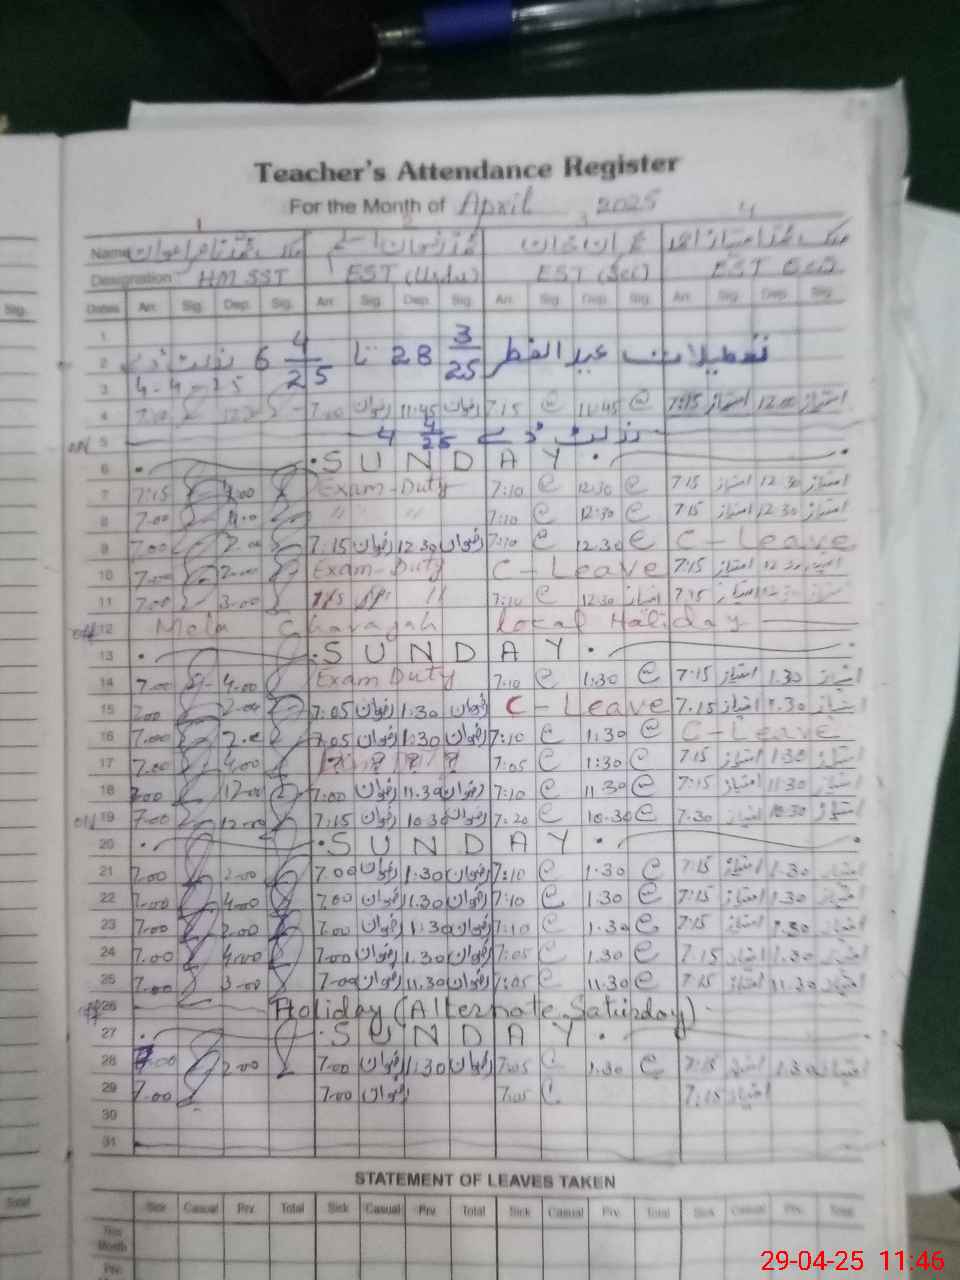 Teacher's Attendance Register
For the Month of April 2025
1 2 3 4
Name محمد رضوان اسلم عمران خان ملک محمد امتیاز احمد
Designation HM SST EST (Urdu) EST (Sci) EST
Sig. Dates Arr. Sig. Dep. Sig. Arr. Sig. Dep. Sig. Arr. Sig. Dep. Sig. Arr. Sig. Dep. Sig.
1
2 تعطیلات عید الفطر 28 3/25 تا 6 4/25
3 4-4-25
4 7:00 رضوان 11:45 رضوان 7:15 e 11:45 e 7:15 امتیاز 12:00 امتیاز
5 4 4/25
6 SUNDAY
7 7:15 4:00 Exam-Duty 7:10 e 12:30 e 7:15 امتیاز 12:30 امتیاز
8 7:00 4:00 〃 〃 〃 7:10 e 12:30 e 7:15 امتیاز 12:30 امتیاز
9 7:00 2:00 7:15 رضوان 12:30 رضوان 7:10 e 12:30 e C-Leave
10 7:00 2:00 Exam-Duty C-Leave 7:15 امتیاز
11 7:00 3:00 7:10 e 12:30 7:15 امتیاز
off 12 Mela Local Holiday
13 SUNDAY
14 7:00 4:00 Exam Duty 7:10 e 1:30 e 7:15 امتیاز 1:30 امتیاز
15 7:00 2:00 7:05 رضوان 1:30 رضوان C-Leave 7:15 امتیاز 1:30 امتیاز
16 7:00 2:00 7:05 رضوان 1:30 رضوان 7:10 e 1:30 e C-Leave
17 7:00 4:00 7:05 e 1:30 e 7:15 امتیاز 1:30 امتیاز
18 7:00 12:00 7:00 رضوان 11:30 رضوان 7:10 e 11:30 e 7:15 امتیاز 11:30 امتیاز
19 7:00 12:00 7:15 رضوان 10:30 رضوان 7:20 e 10:30 e 7:30 امتیاز 10:30 امتیاز
20 SUNDAY
21 7:00 2:00 7:00 رضوان 1:30 رضوان 7:10 e 1:30 e 7:15 امتیاز 1:30 امتیاز
22 7:00 4:00 7:00 رضوان 1:30 رضوان 7:10 e 1:30 e 7:15 امتیاز 1:30 امتیاز
23 7:00 2:00 7:00 رضوان 1:30 رضوان 7:10 e 1:30 e 7:15 امتیاز 1:30 امتیاز
24 7:00 4:00 7:00 رضوان 1:30 رضوان 7:05 e 1:30 e 7:15 امتیاز 1:30 امتیاز
25 7:00 3:00 7:00 رضوان 11:30 رضوان 7:05 e 11:30 e 7:15 امتیاز 11:30 امتیاز
off 26 Holiday (Alternate Saturday)
27 SUNDAY
28 7:00 2:00 7:00 رضوان 1:30 رضوان 7:05 e 1:30 e 7:15 امتیاز 1:30 امتیاز
29 7:00 7:00 رضوان 7:05 e 7:15 امتیاز
30
31
STATEMENT OF LEAVES TAKEN
Total Sick Casual Prv. Total Sick Casual Prv. Total Sick Casual Prv. Total Sick Casual Prv. Total
This Month
Pre.
29-04-25 11:46